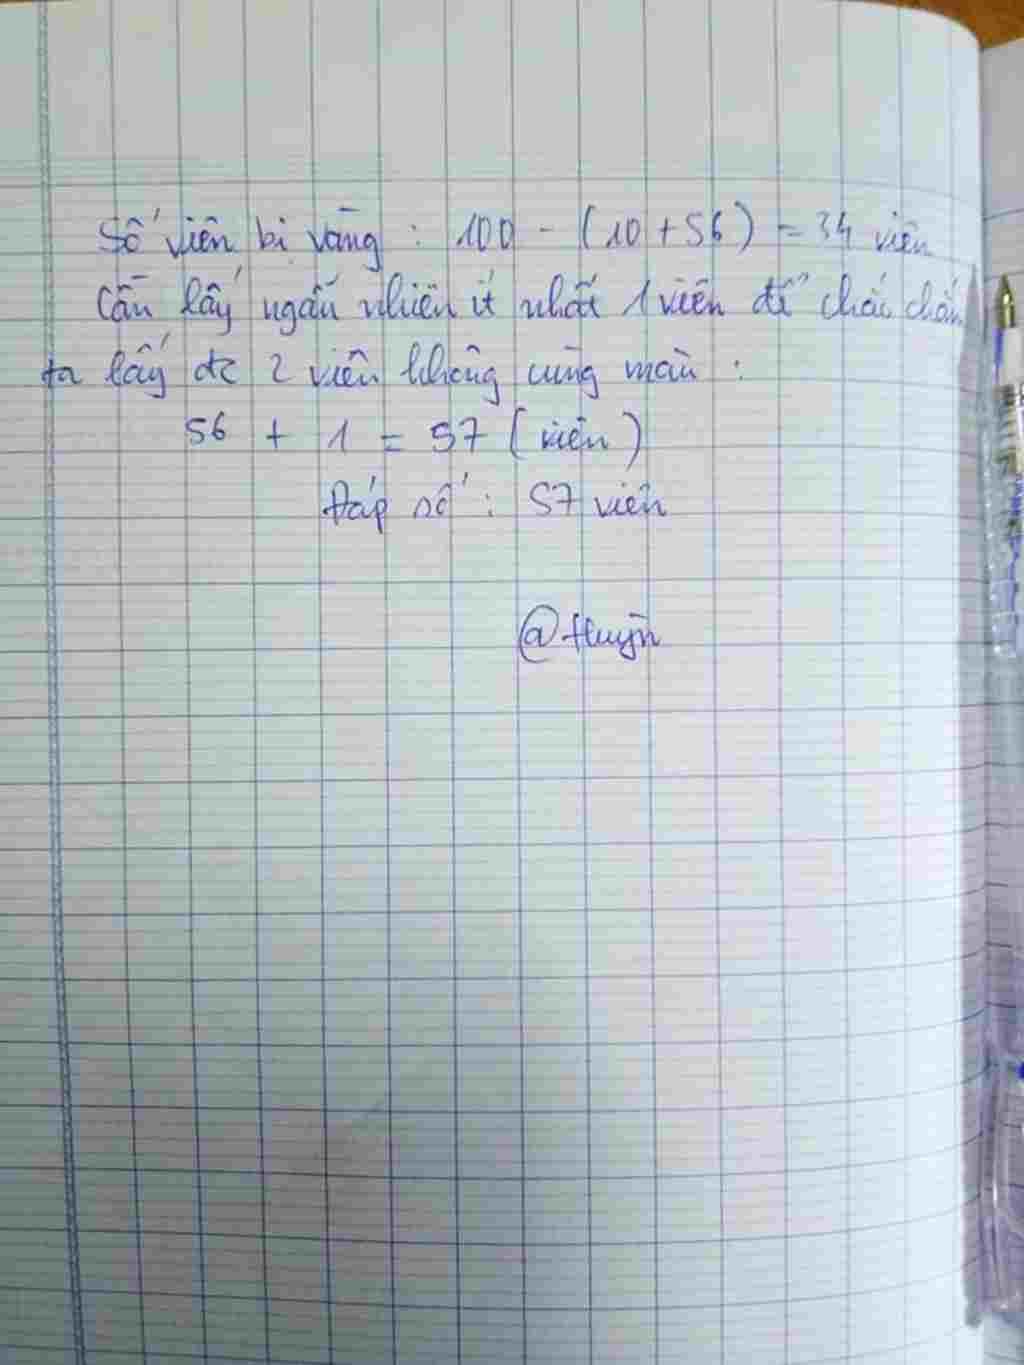 Số viên bi vàng : 100 - (10 + 56) = 34 viên
Cần lấy ngẫu nhiên ít nhất 1 viên để chắc chắn
ta lấy đc 2 viên không cùng màu :
56 + 1 = 57 (viên)
Đáp số : 57 viên
@Huyền